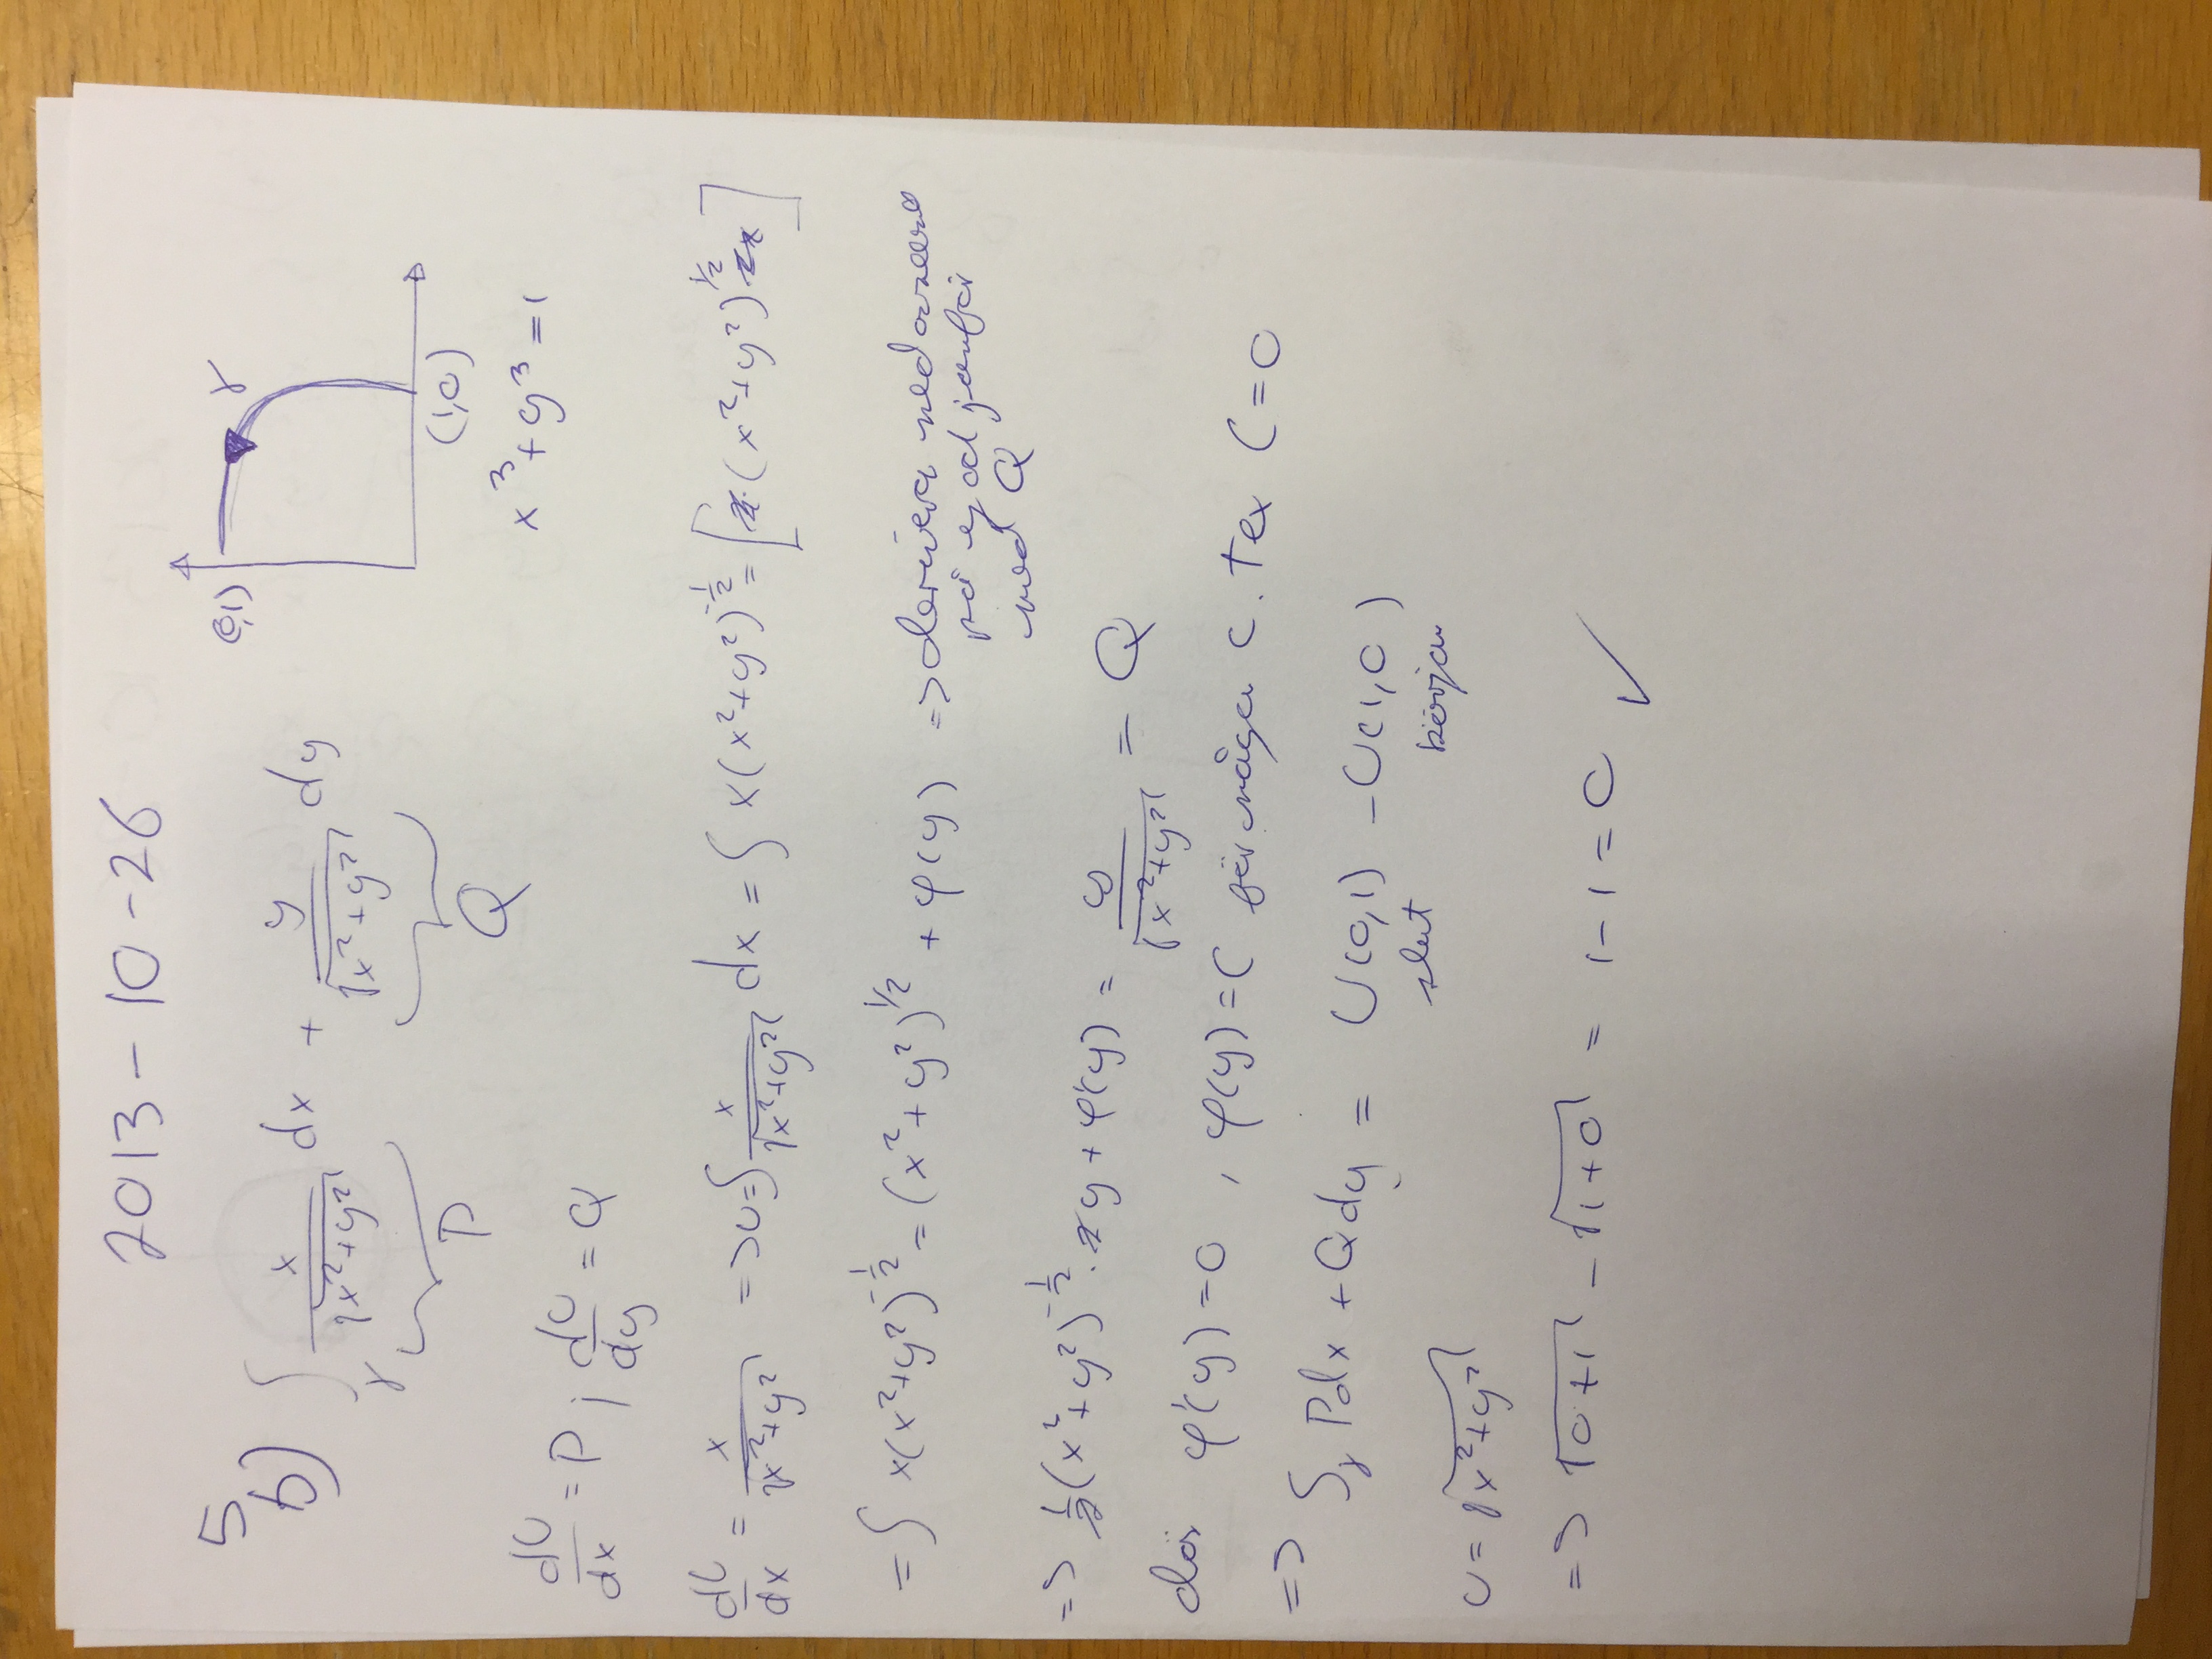 2013-10-26
5
b) ∫γ x/√(x²+y²) dx + y/√(x²+y²) dy
P Q
(0,1) γ
(1,0)
x³+y³=1
dU/dx = P ; dU/dy = Q
dU/dx = x/√(x²+y²) => U=∫ x/√(x²+y²) dx = ∫ x(x²+y²)^-1/2 = [(x²+y²)^1/2]
= ∫ x(x²+y²)^-1/2 = (x²+y²)^1/2 + φ(y) => derivera med avseende
på y och jämför
med Q
=> 1/2(x²+y²)^-1/2 · 2y + φ'(y) = y/√(x²+y²) = Q
där φ'(y)=0 , φ(y)=C för något C. tex C=0
=> ∫γ Pdx + Qdy = U(0,1) - U(1,0)
slut början
U = √(x²+y²)
=> √(0+1) - √(1+0) = 1-1=0 ✓